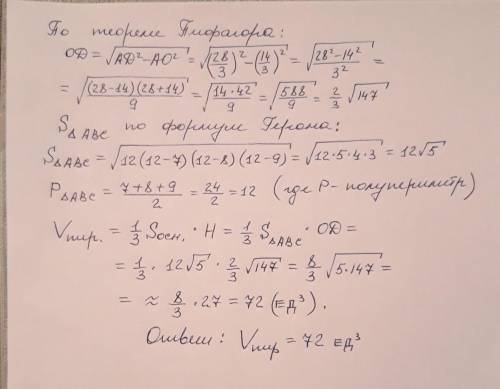 По теореме Пифагора:
OD = √(AD² − AO²) = √((28/3)² − (14/3)²) = √((28² − 14²)/3²) =
= √((28−14)(28+14)/9) = √(14·42/9) = √(588/9) = 2/3 √147
S△ABC по формуле Герона:
S△ABC = √(12(12−7)(12−8)(12−9)) = √(12·5·4·3) = 12√5
P△ABC = (7+8+9)/2 = 24/2 = 12 (где P – полупериметр)
Vпир. = 1/3 Sосн. · H = 1/3 S△ABC · OD =
= 1/3 · 12√5 · 2/3 √147 = 8/3 √(5·147) =
= ≈ 8/3 · 27 = 72 (ед³).
Ответ: Vпир = 72 ед³